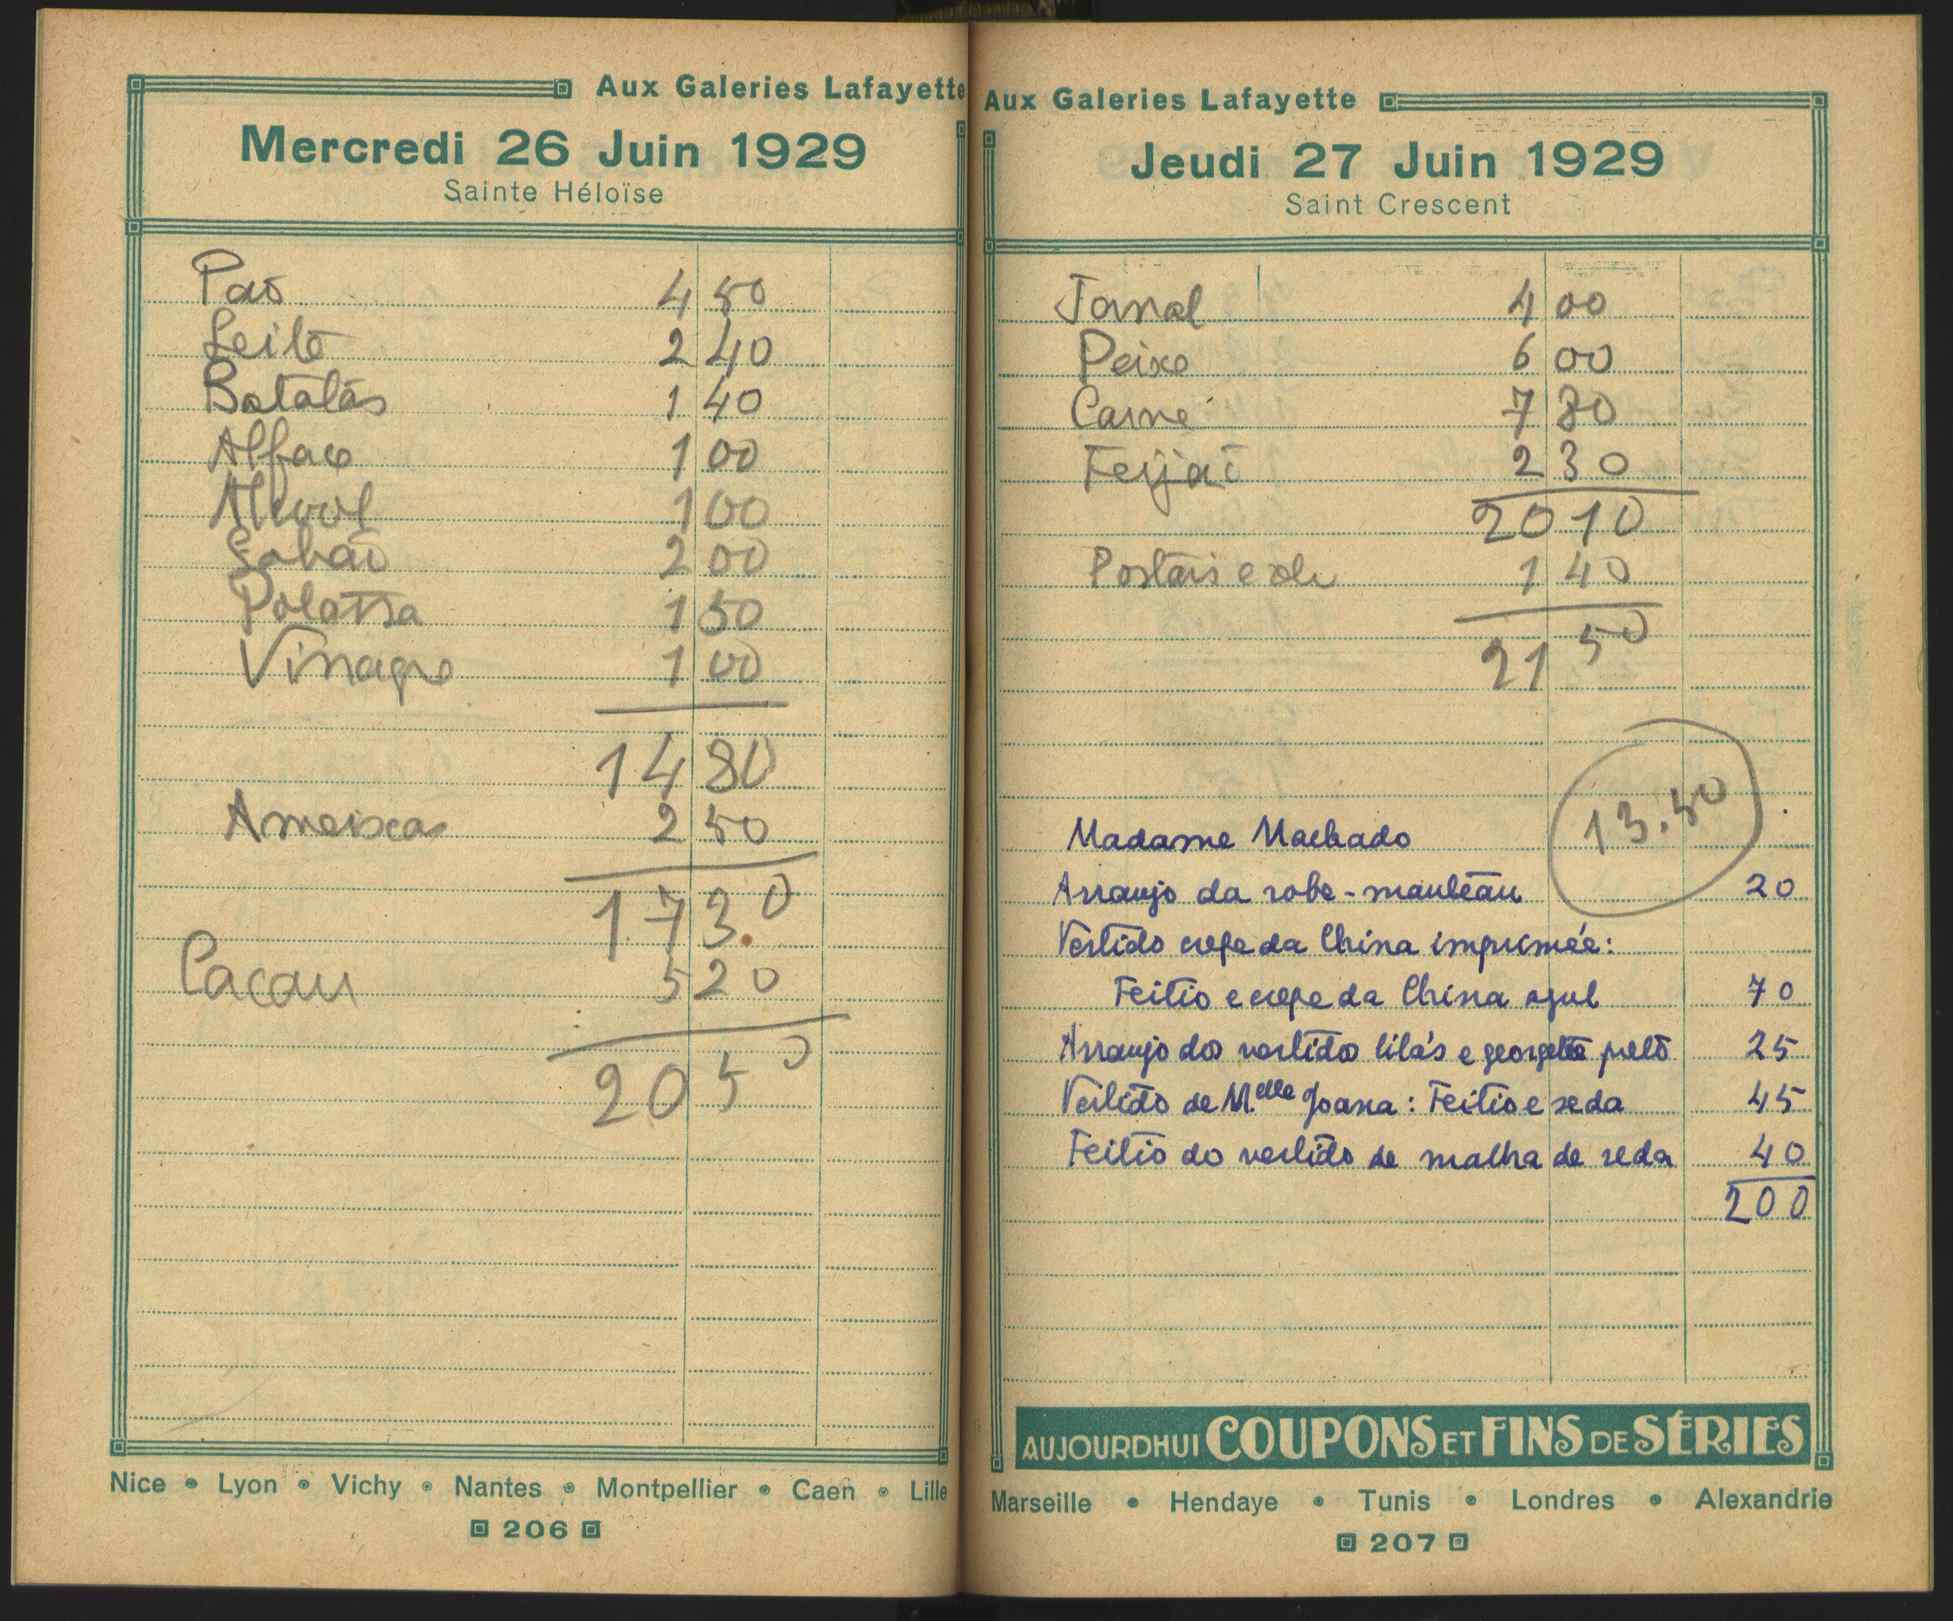 Aux Galeries Lafayette
Mercredi 26 Juin 1929
Sainte Héloïse
Pão 4 50
Leite 2 40
Batatas 1 40
Alface 1 00
Alcool 1 00
Sabão 2 00
Potassa 1 50
Vinagre 1 00
14 80
Ameixas 2 50
17 30
Cacau 5 20
20 50
Nice • Lyon • Vichy • Nantes • Montpellier • Caen • Lille
206
Aux Galeries Lafayette
Jeudi 27 Juin 1929
Saint Crescent
Jornal 4 00
Peixe 6 00
Carne 7 80
Feijão 2 30
20 10
Postais e 1 40
21 50
13.50
Madame Machado
Arranjo da robe-manteau 20
Vestido crepe da China imprimée:
Feitio e crepe da China azul 70
Arranjo dos vestidos lilás e georgette preto 25
Vestido de Melle Joana: Feitio e seda 45
Feitio do vestido de malha de seda 40
200
AUJOURDHUI COUPONS ET FINS DE SÉRIES
Marseille • Hendaye • Tunis • Londres • Alexandrie
207